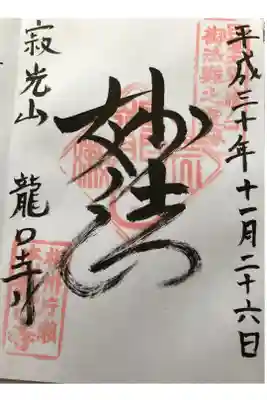 平成三十年十一月二十六日
妙法
寂光山 龍口寺